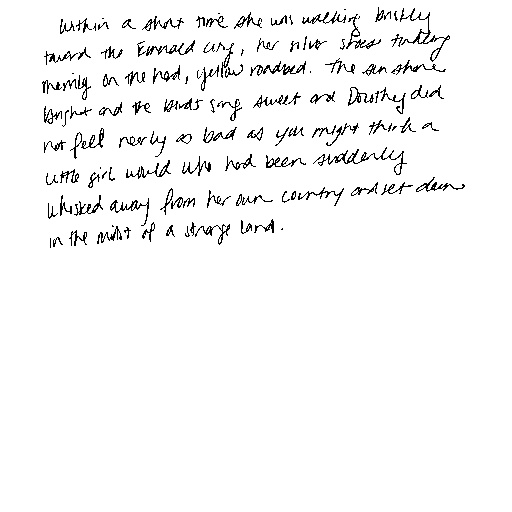 Within a short time she was walking briskly
toward the Emerald City, her silver shoes tinkling
merrily on the hard, yellow roadbed. The sun shone
bright and the birds sang sweet and Dorothy did
not feel nearly as bad as you might think a
little girl would who had been suddenly
whisked away from her own country and set down
in the midst of a strange land.